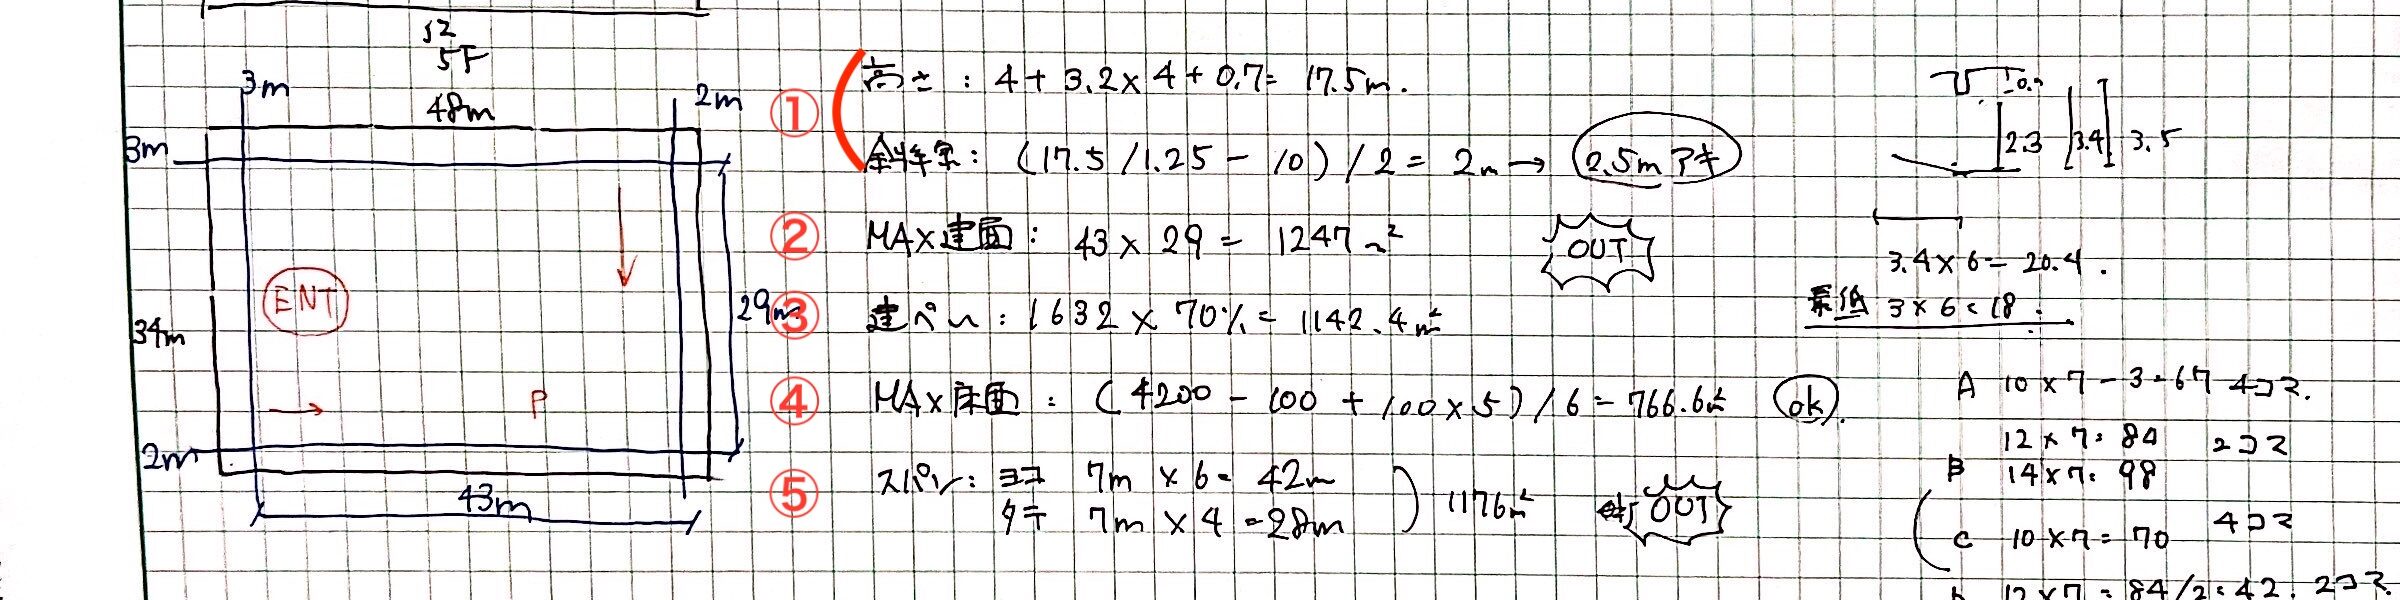 52
5F
3m
48m
2m
3m
ENT
34m
29m
P
2m
43m
①
高さ : 4 + 3.2 × 4 + 0.7 = 17.5m.
斜線 : (17.5 / 1.25 - 10) / 2 = 2m → 2.5mアキ
② MAX建面 : 43 × 29 = 1247m² OUT
③ 建ぺい : 1632 × 70% = 1142.4m²
④ MAX床面 : (4200 - 100 + 100 × 5) / 6 = 766.6m² ok
⑤ スパン : ヨコ 7m × 6 = 42m
タテ 7m × 4 = 28m
1176m² OUT
2.3 3.4 3.5
3.4 × 6 = 20.4.
最低 3 × 6 = 18
A 10 × 7 - 3 = 67 4コマ.
12 × 7 = 84 2コマ
B 14 × 7 = 98
C 10 × 7 = 70 4コマ
12 × 7 = 84/2 = 42. 2コマ